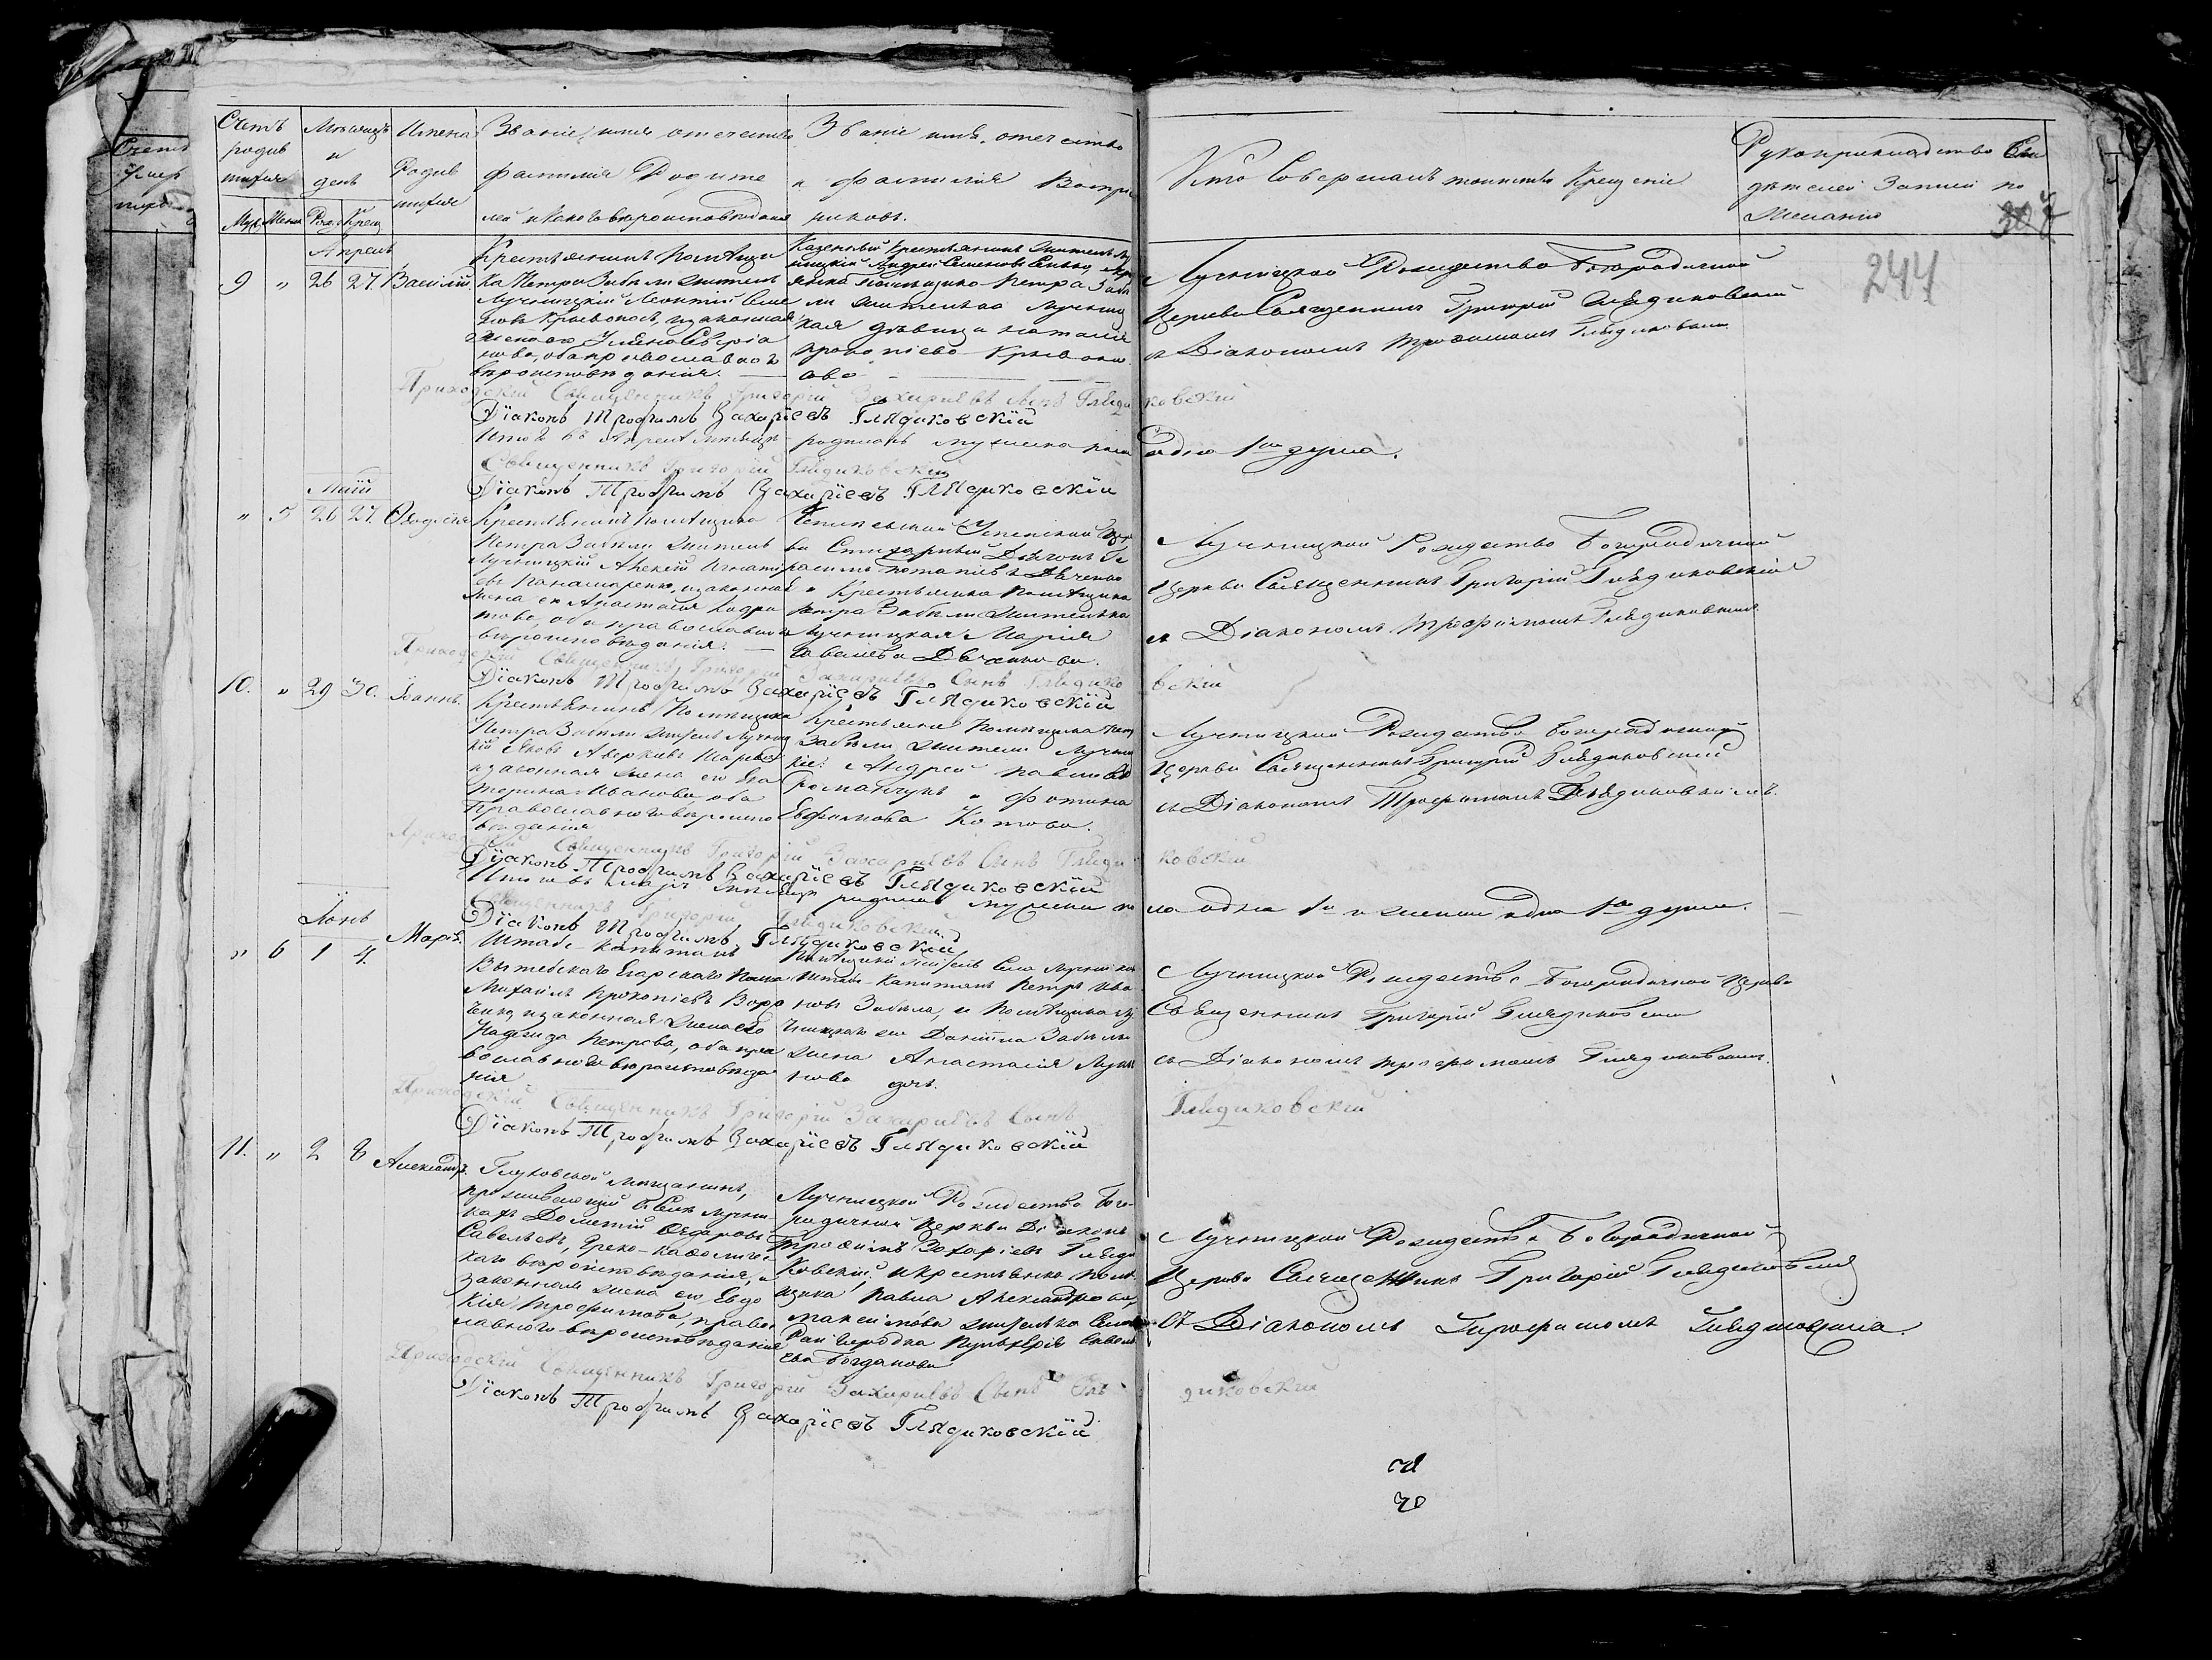 Счетъ родив шихся
Муж. Женс.
Мѣсяцъ и день
Рож. Крещ.
Имена Родив шихся
Званіе, имя, отечество
фамилія Родите
лей и какого вѣроисповѣданія
Званіе имя, отечество
и фамилія Воспрі
никовъ.
Кто Совершалъ таинство Крещенія
Рукоприкладство Сви
дѣтелей записи по
Желанію
307
244
Апрель
9 " 26 27. Василій.
Крестьянинъ Помѣщи
ка Петра Забѣлы житель
Лучницкій Леонтій
законная
жена его
оба православнаго
вѣроисповѣданія.
Казенный Крестьянинъ житель Лу
чницкій Андрей Семеновъ
Помѣщика Петра Забѣ
лы жителька Лучниц
кая дѣвица Наталія
Прокопіева
Лучницкой Рождество Богородичной
Церкви Священникъ Григорій Глядиковскій
съ Діакономъ Трофимомъ Глядиковскимъ
Приходскій Священникъ Григорій Захаріевъ Сынъ Глядиковскій
Діаконъ Трофимъ Захаріевъ Глядиковскій
Итого въ Апрелѣ мѣсяцѣ родилось мужеска пола одна 1 душа.
Священникъ Григорій Глядиковскій
Діаконъ Трофимъ Захаріевъ Глядиковскій
Маій
" 5 26 27. Ѳеодосія
Крестьянинъ Помѣщика
Петра Забѣлы житель
Лучницкій Алексѣй Игнаті
евъ Панамаренко, и законная
жена его Анастасія Кодра
това, оба православнаго
вѣроисповѣданія.
Успенской Церк
ви Стихарный Дьячокъ Ге
расимъ Потапіевъ Дяченко
и Крестьянка Помѣщика
Петра Забѣлы жителька
Лучницкая Марія
Савельева Дяченкова.
Лучницкой Рождество Богородичной
Церкви Священникъ Григорій Глядиковскій
съ Діакономъ Трофимомъ Глядиковскимъ
Приходскій Священникъ Григорій Захаріевъ Сынъ Глядиковскій
Діаконъ Трофимъ Захаріевъ Глядиковскій
10. " 29 30. Іоаннъ.
Крестьянинъ Помѣщика
Петра Забѣлы житель Лучниц
кій Яковъ Аверкіевъ
и законная жена его Ека
терина Иванова, оба
Православнаго вѣроиспо
вѣданія
Крестьяне Помѣщика Петра
Забѣлы жители Лучниц
кіе: Андрей Павловъ
Романчукъ и Фотина
Евфимова Котова.
Лучницкой Рождество Богородичной
Церкви Священникъ Григорій Глядиковскій
съ Діакономъ Трофимомъ Глядиковскимъ.
Приходскій Священникъ Григорій Захаріевъ Сынъ Глядиковскій
Діаконъ Трофимъ Захаріевъ Глядиковскій
Итого въ Маіѣ мѣсяцѣ родилось мужска пола одна 1а и женска одна 1а душа.
Священникъ Григорій Глядиковскій
Діаконъ Трофимъ Глядиковскій
Іюнь
" 6 1 4. Марія.
Штабс-капитанъ
Витебскаго Егарскаго Полка
Михаилъ Прокопіевъ
законная жена его
Надежда Петрова, оба пра
вославнаго вѣроисповѣда
нія
Помѣщикъ Села Лучникъ
Штабс-Капитанъ Петръ Ива
новъ Забѣла, и Помѣщика Лу
чницкаго Даніила Забѣлы
жена Анастасія Лукі
нова дочь.
Лучницкой Рождество-Богородичной Церкви
Священникъ Григорій Глядиковскій
съ Діакономъ Трофимомъ Глядиковскимъ.
Приходскій Священникъ Григорій Захаріевъ Сынъ Глядиковскій
Діаконъ Трофимъ Захаріевъ Глядиковскій
11. " 2 8 Александръ.
Глуховской мѣщанинъ,
проживающій въ Селѣ Лучни
кахъ Дометій Ѳедоровъ
Савельевъ, Греко-каѳоличес
каго вѣроисповѣданія, и
законная жена его Евдо
кія Трофимова, правос
лавнаго вѣроисповѣданія
Лучницкой Рождество Бого
родичной Церкви Діаконъ
Трофимъ Захаріевъ Гляди
ковскій, и крестьянка помѣ
щика Павла Александрова
Максимова жителька Села
Пульхерія Савель
ева Богданова
Лучницкой Рождество Богородичной
Церкви Священникъ Григорій Глядиковскій
съ Діакономъ Трофимомъ Глядиковскимъ.
Приходскій Священникъ Григорій Захаріевъ Сынъ Глядиковскій
Діаконъ Трофимъ Захаріевъ Глядиковскій